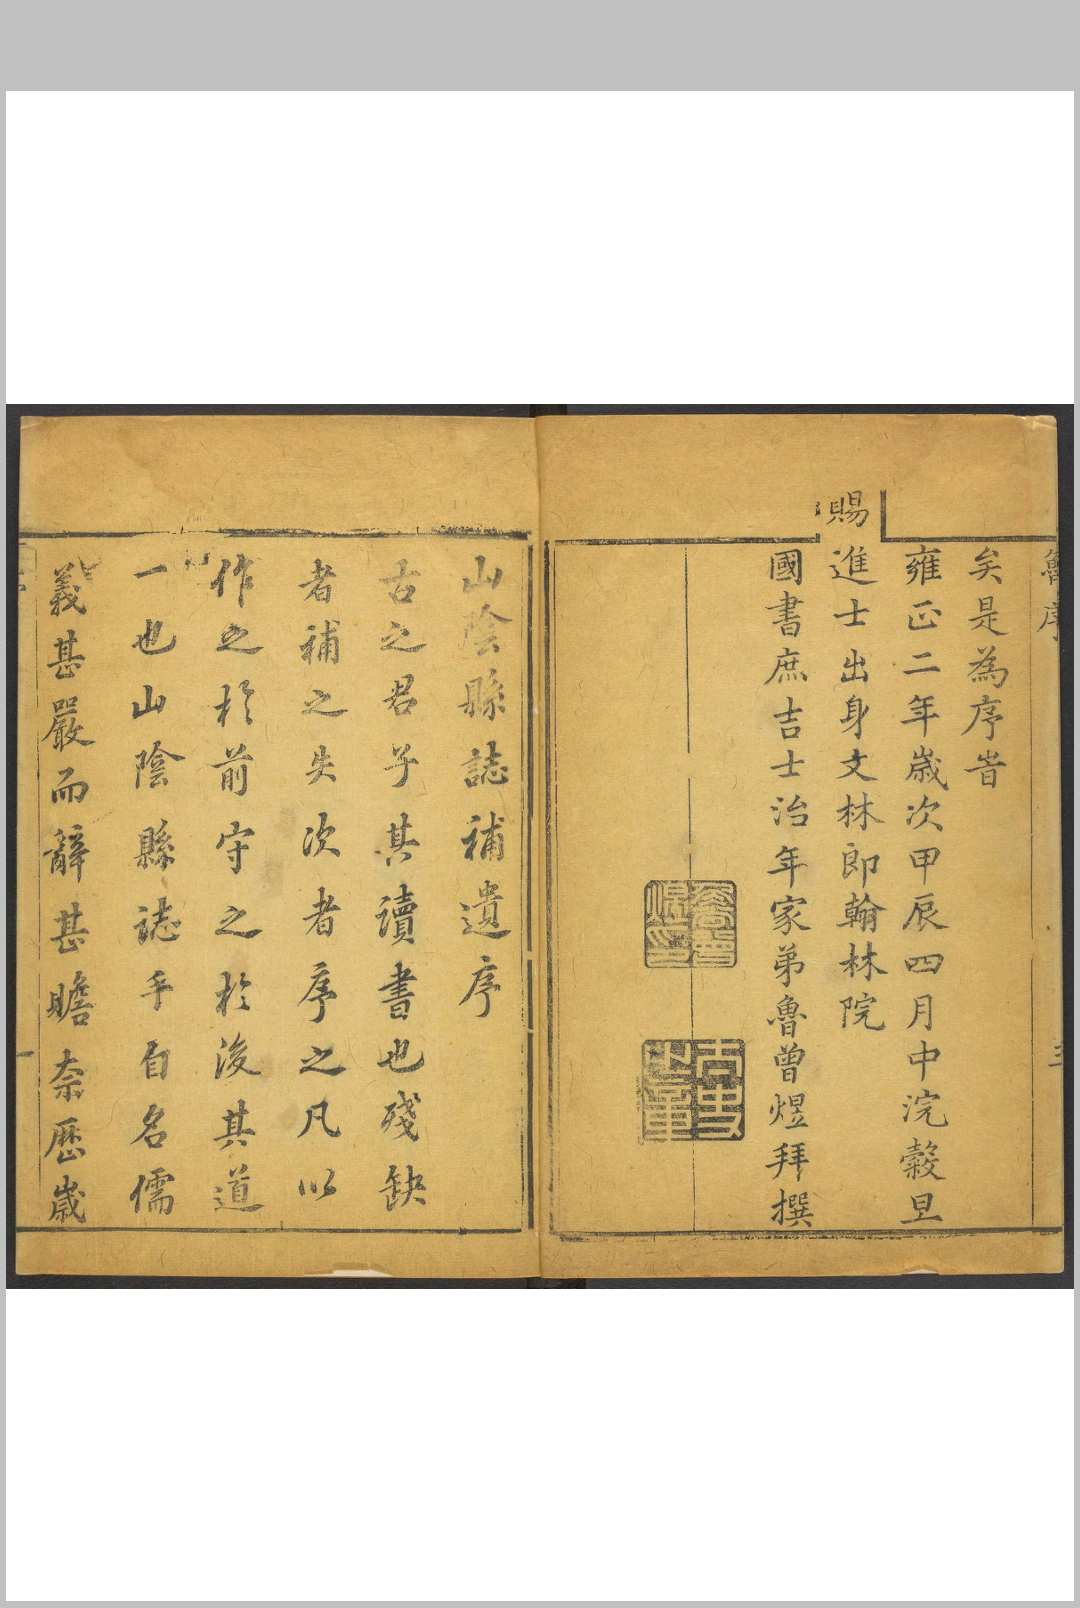 魯序
矣是為序旹
雍正二年歲次甲辰四月中浣穀旦
賜進士出身文林郎翰林院
國書庶吉士治年家弟魯曾煜拜撰
山陰縣誌補遺序
古之君子其讀書也殘缺
者補之失次者序之凡以
作之於前守之於後其道
一也山陰縣誌乎自名儒
義甚嚴而辭甚贍柰歷歲